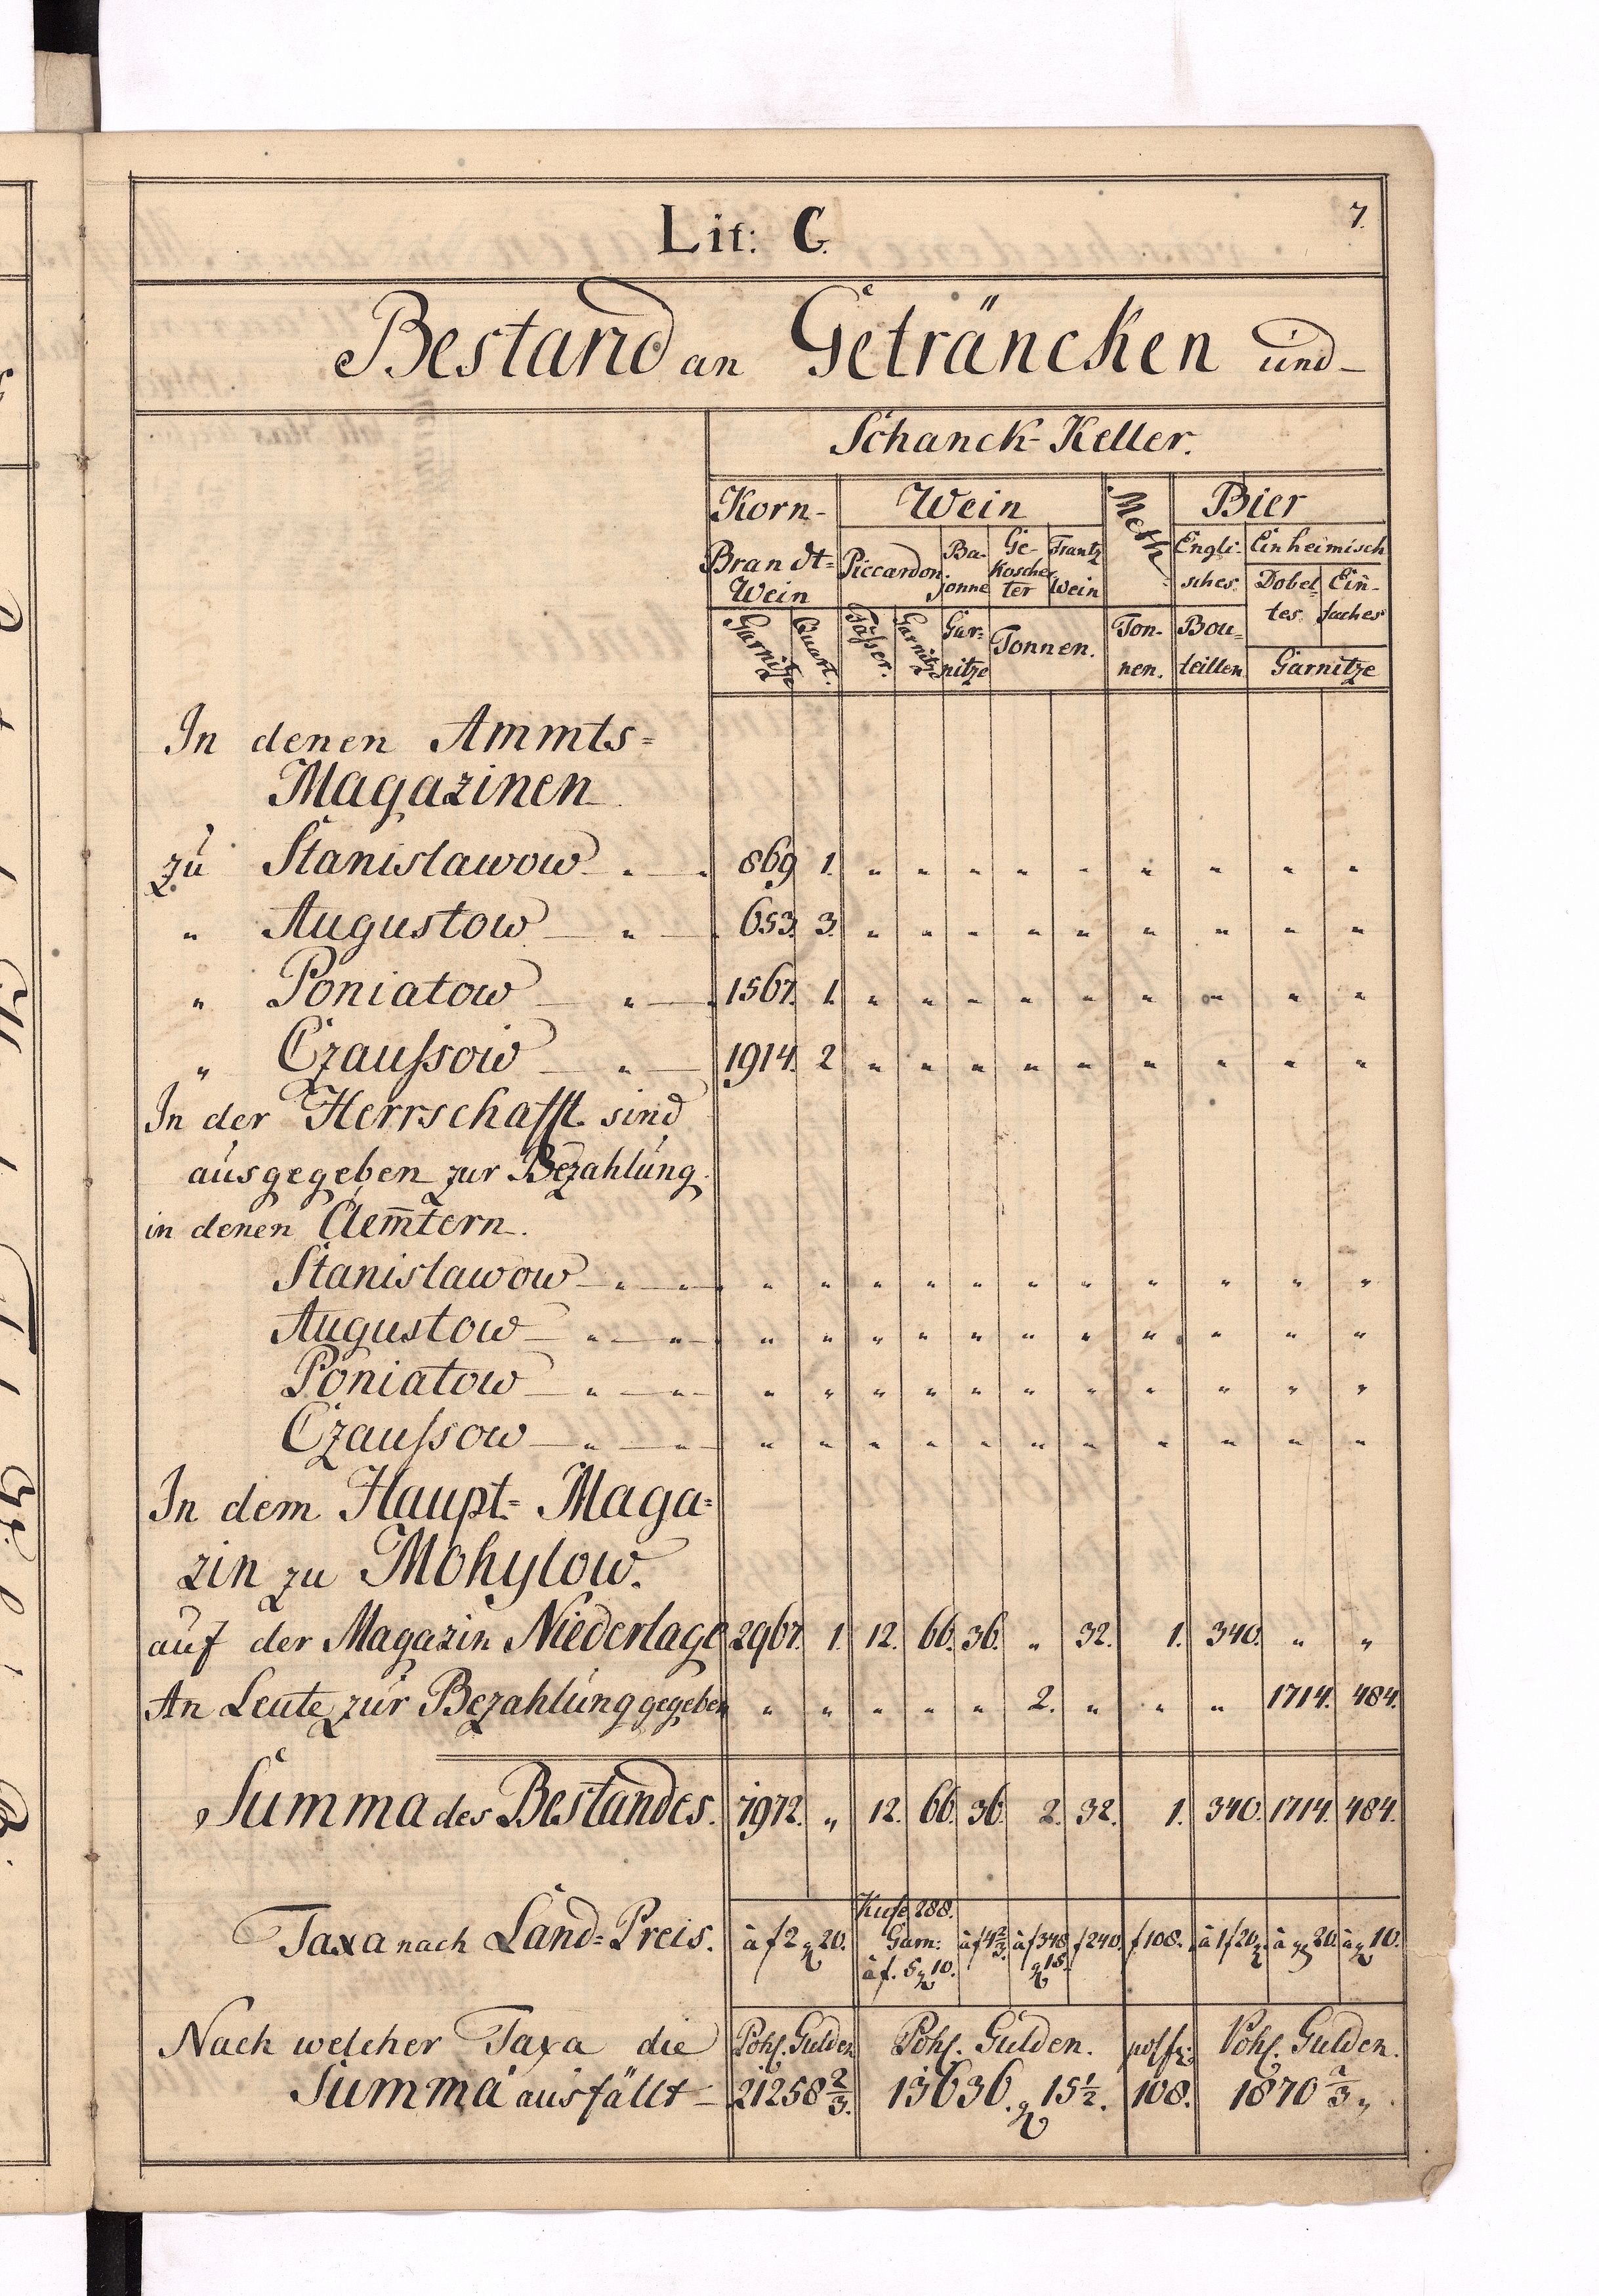 7.
Lit: C.
Bestand an Geträncken und
Schanck-Keller.
Korn- Wein Meth Bier
Brandt= Wein Piccardon Ba- jonne Ge- Koscher ter Frantz Wein Engli- sches Einheimisch
Dobel- tes Ein- faches
Garnitze Quart. Fässer. Garnitze Gar- nitze Tonnen. Ton- nen. Bou= teillen Garnitze
In denen Ammts=
Magazinen
zu Stanislawow " 869 1. " " " " " " " " "
" Augustow " 653. 3. " " " " " " " " "
" Poniatow " 1567. 1. " " " " " " " " "
" Czaussow " 1914. 2 " " " " " " " " "
In der Herrschafft sind
ausgegeben zur Bezahlung
in denen Aem̄tern.
Stanislawow " " " " " " " " " " " " "
Augustow " " " " " " " " " " " " "
Poniatow " " " " " " " " " " " " "
Czaussow " " " " " " " " " " " " "
In dem Haupt= Maga=
zin zu Mohylow.
auf der Magazin Niederlage 2967. 1. 12. 66. 36. " 32. 1. 340. " "
An Leute zur Bezahlung gegeben " " " " " 2. " " " 1714. 484.
Summa des Bestandes. 7972. " 12. 66. 36. 2. 32. 1. 340. 1714. 484.
Kufe 288.
Taxa nach Land=Preis. à f 2 g 20. Garn: à f. 5 g 10. à f 4 2/3. à f 348 g 15. f 240. f 108. à 1 f 20 g à g 20. à g 10.
Nach welcher Taxa die Pohl. Gulden Pohl. Gulden. Pohl. Gulden.
Summa ausfällt 21258 2/3. 13636. g 15 1/2. 108. 1870 2/3 "